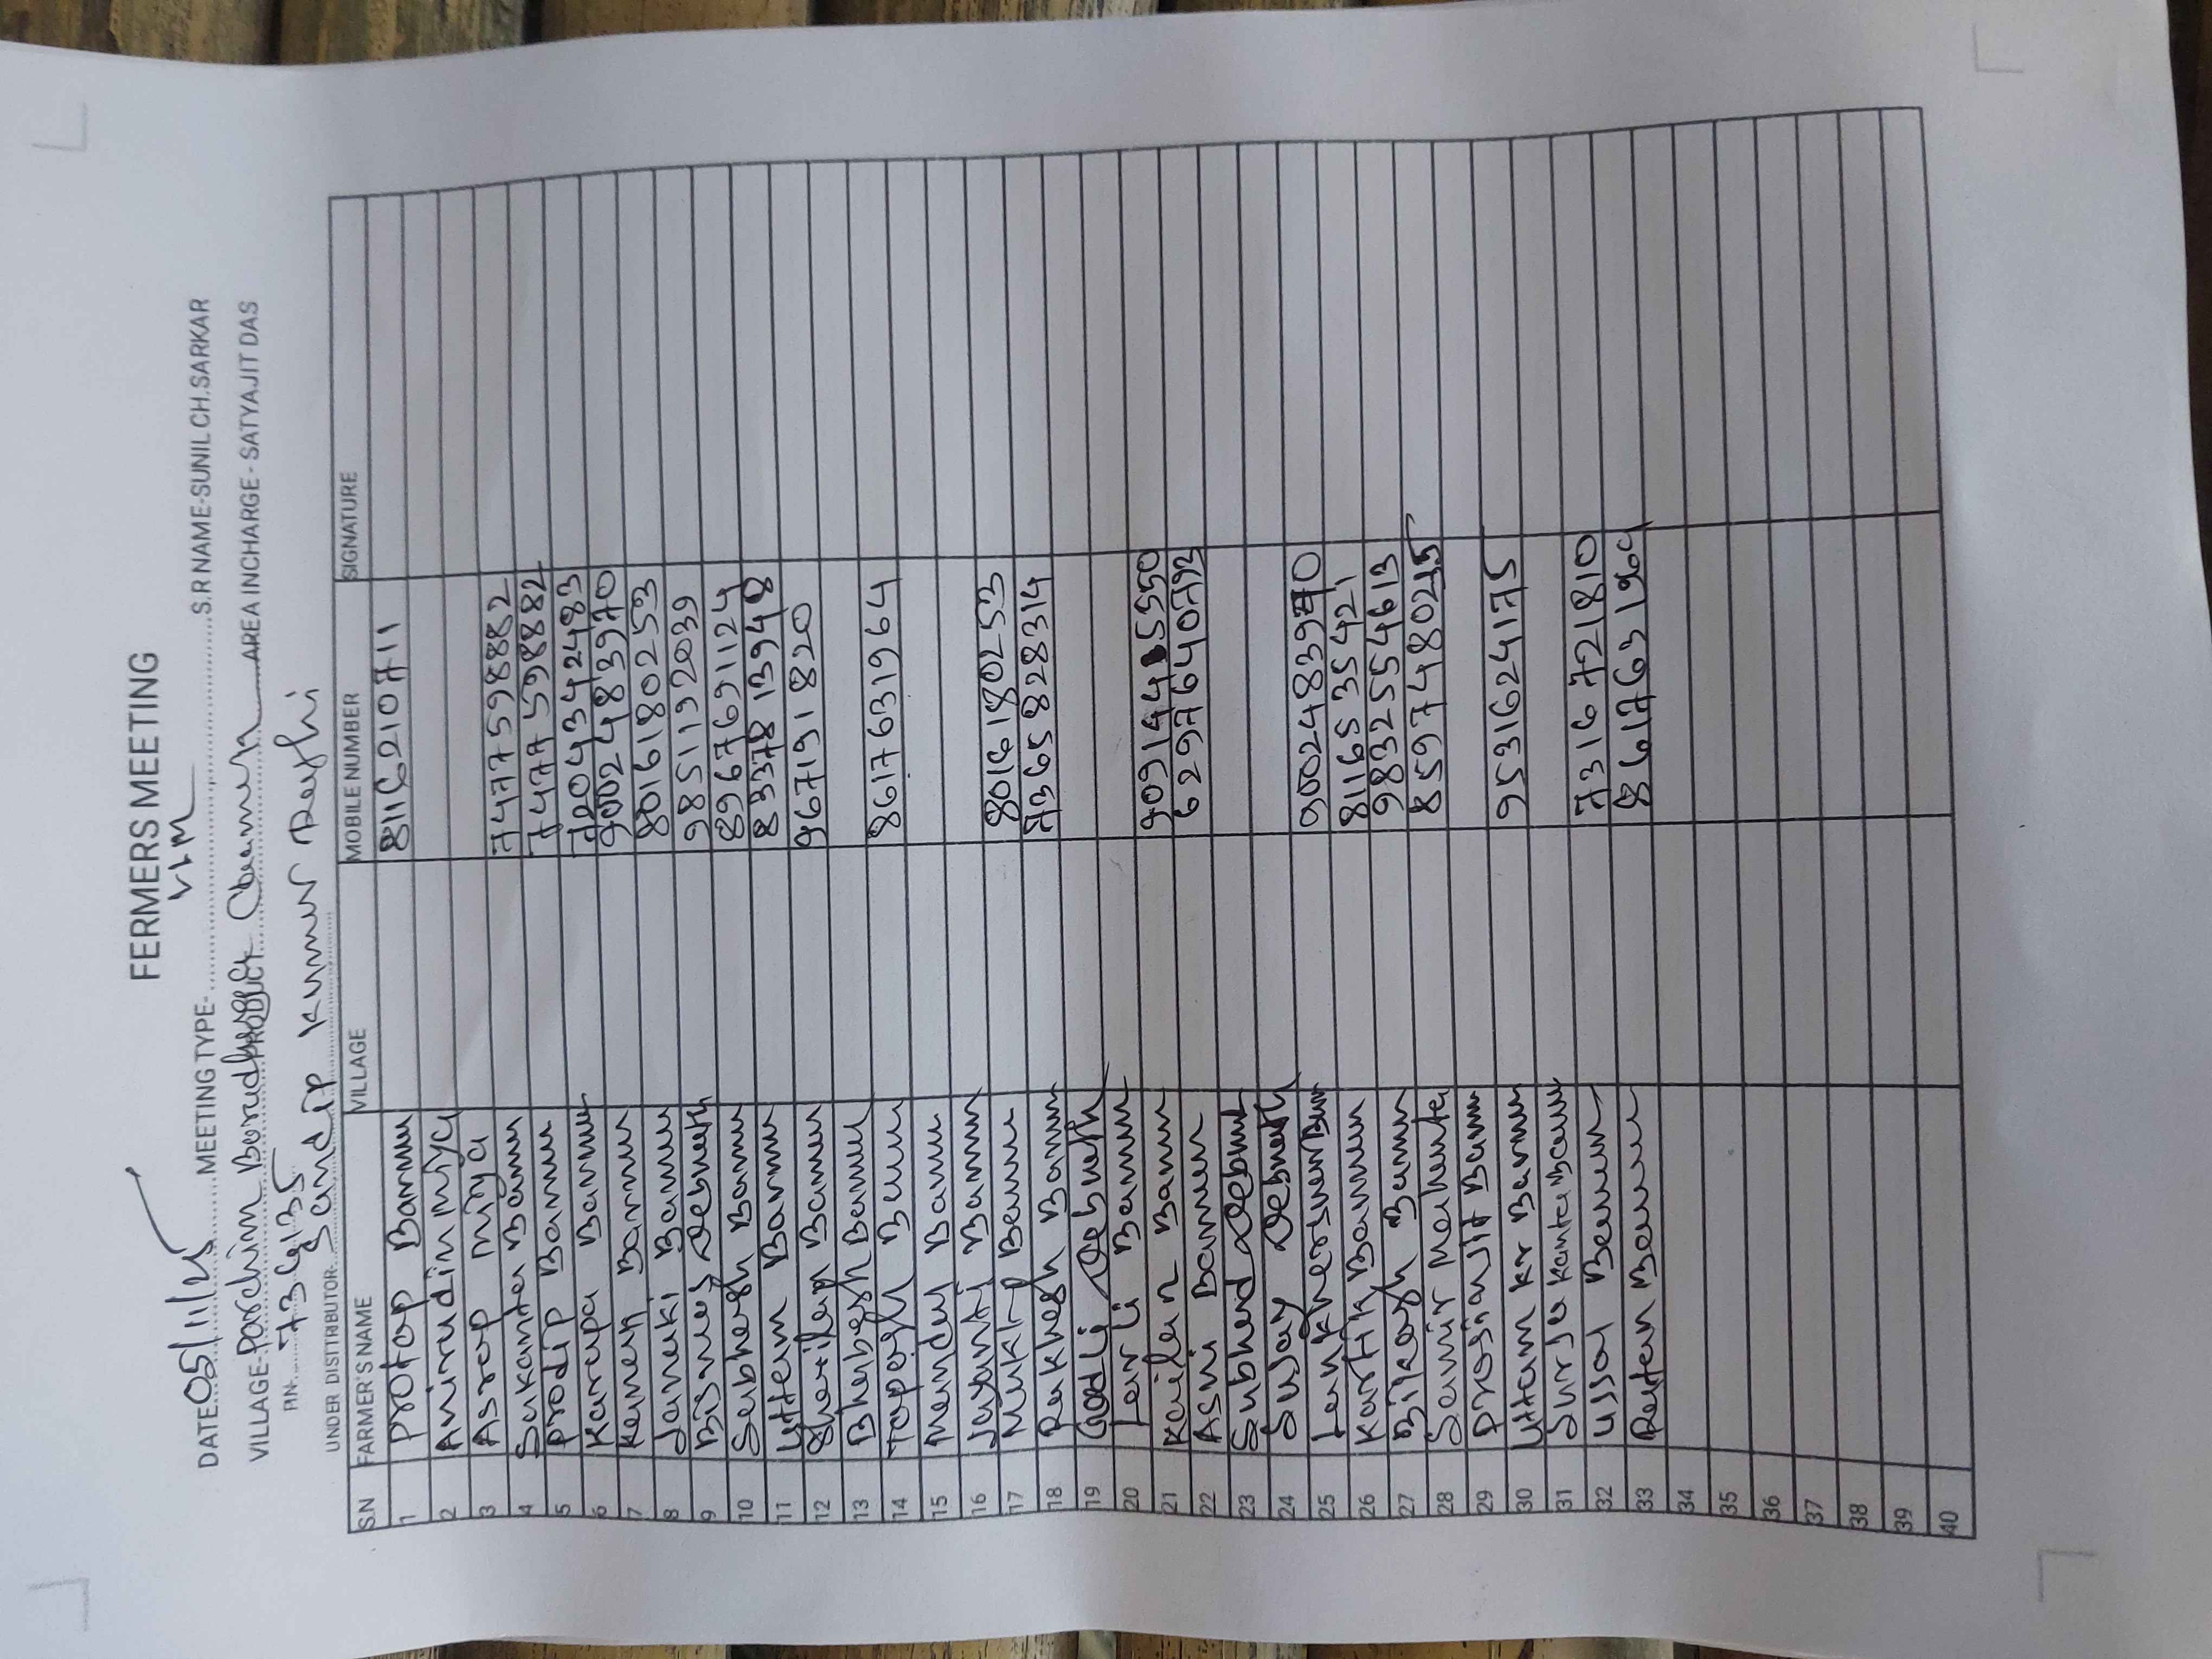 FERMERS MEETING
DATE 05/11/25 MEETING TYPE- VLM S.R NAME-SUNIL CH.SARKAR
VILLAGE- Paschim PRODUCT- AREA INCHARGE - SATYAJIT DAS
PIN- 736135
UNDER DISTRIBUTOR Sandip Kumar
S.N FARMER'S NAME VILLAGE MOBILE NUMBER SIGNATURE
1 Protap Barman 8116210711
2 Amirudin miya
3 Asrap miya 7477598882
4 Sukanta Barman 7477598882
5 Prodip Barman 7204342483
6 Karuna Barman 9002483970
7 Barman 8016180253
8 Janeki Barman 9851192039
9 Debnath 8967691124
10 Subhash Barman 8337813948
11 Uttam Barman 967191820
12 Barman
13 Barman 8617631964
14 Tapash Barman
15 Barman
16 Jayanti Barman 8016180253
17 Mukti Barman 7365828314
18 Barman
19 Debnath
20 Barman 5550
21 Barman 6297640792
22 Asni Barman
23 Debnath
24 Sujay Debnath 9002483970
25 8116535421
26 Kartik Barman 9832554613
27 Bikash Barman 8597480245
28 Samir
29 Prosianjit Barman 9531624175
30 Uttam Kr Barman
31 Surja Kanta Barman 7316721810
32 Barman 86176319
33 Barman
34
35
36
37
38
39
40